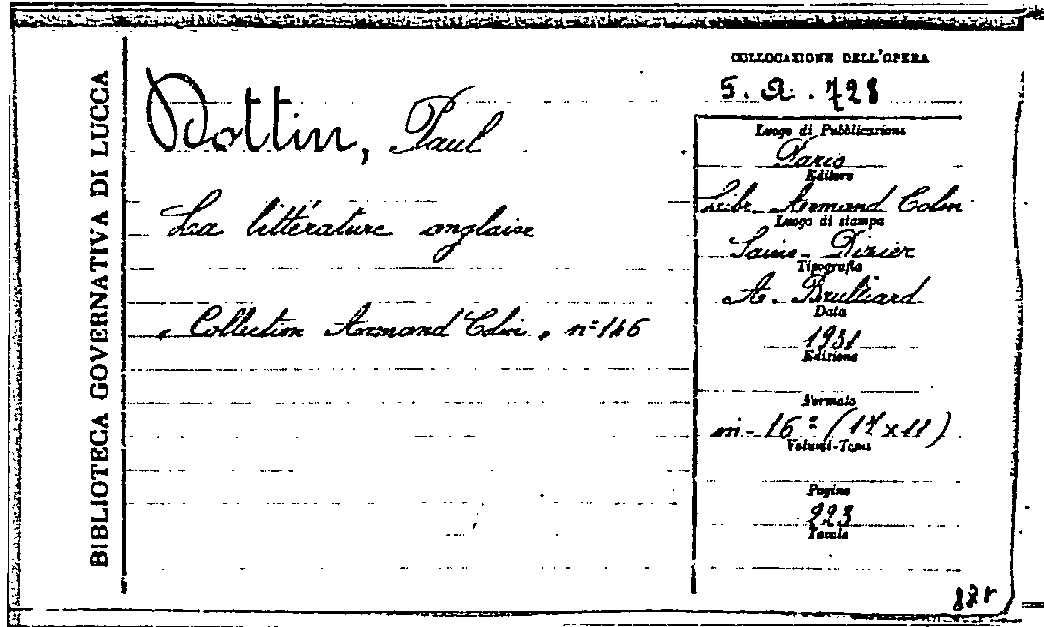 BIBLIOTECA GOVERNATIVA DI LUCCA
Dottin, Paul
La littérature anglaise
« Collection Armand Colin » n° 146
COLLOCAZIONE DELL'OPERA
5. a. 728
Luogo di Pubblicazione
Paris
Editore
Libr. Armand Colin
Luogo di stampa
Saint-Dizier
Tipografia
A. Brulliard
Data
1931
Edizione
Formato
in-16° (17 x 11)
Volumi-Tomi
Pagine
223
Tavole